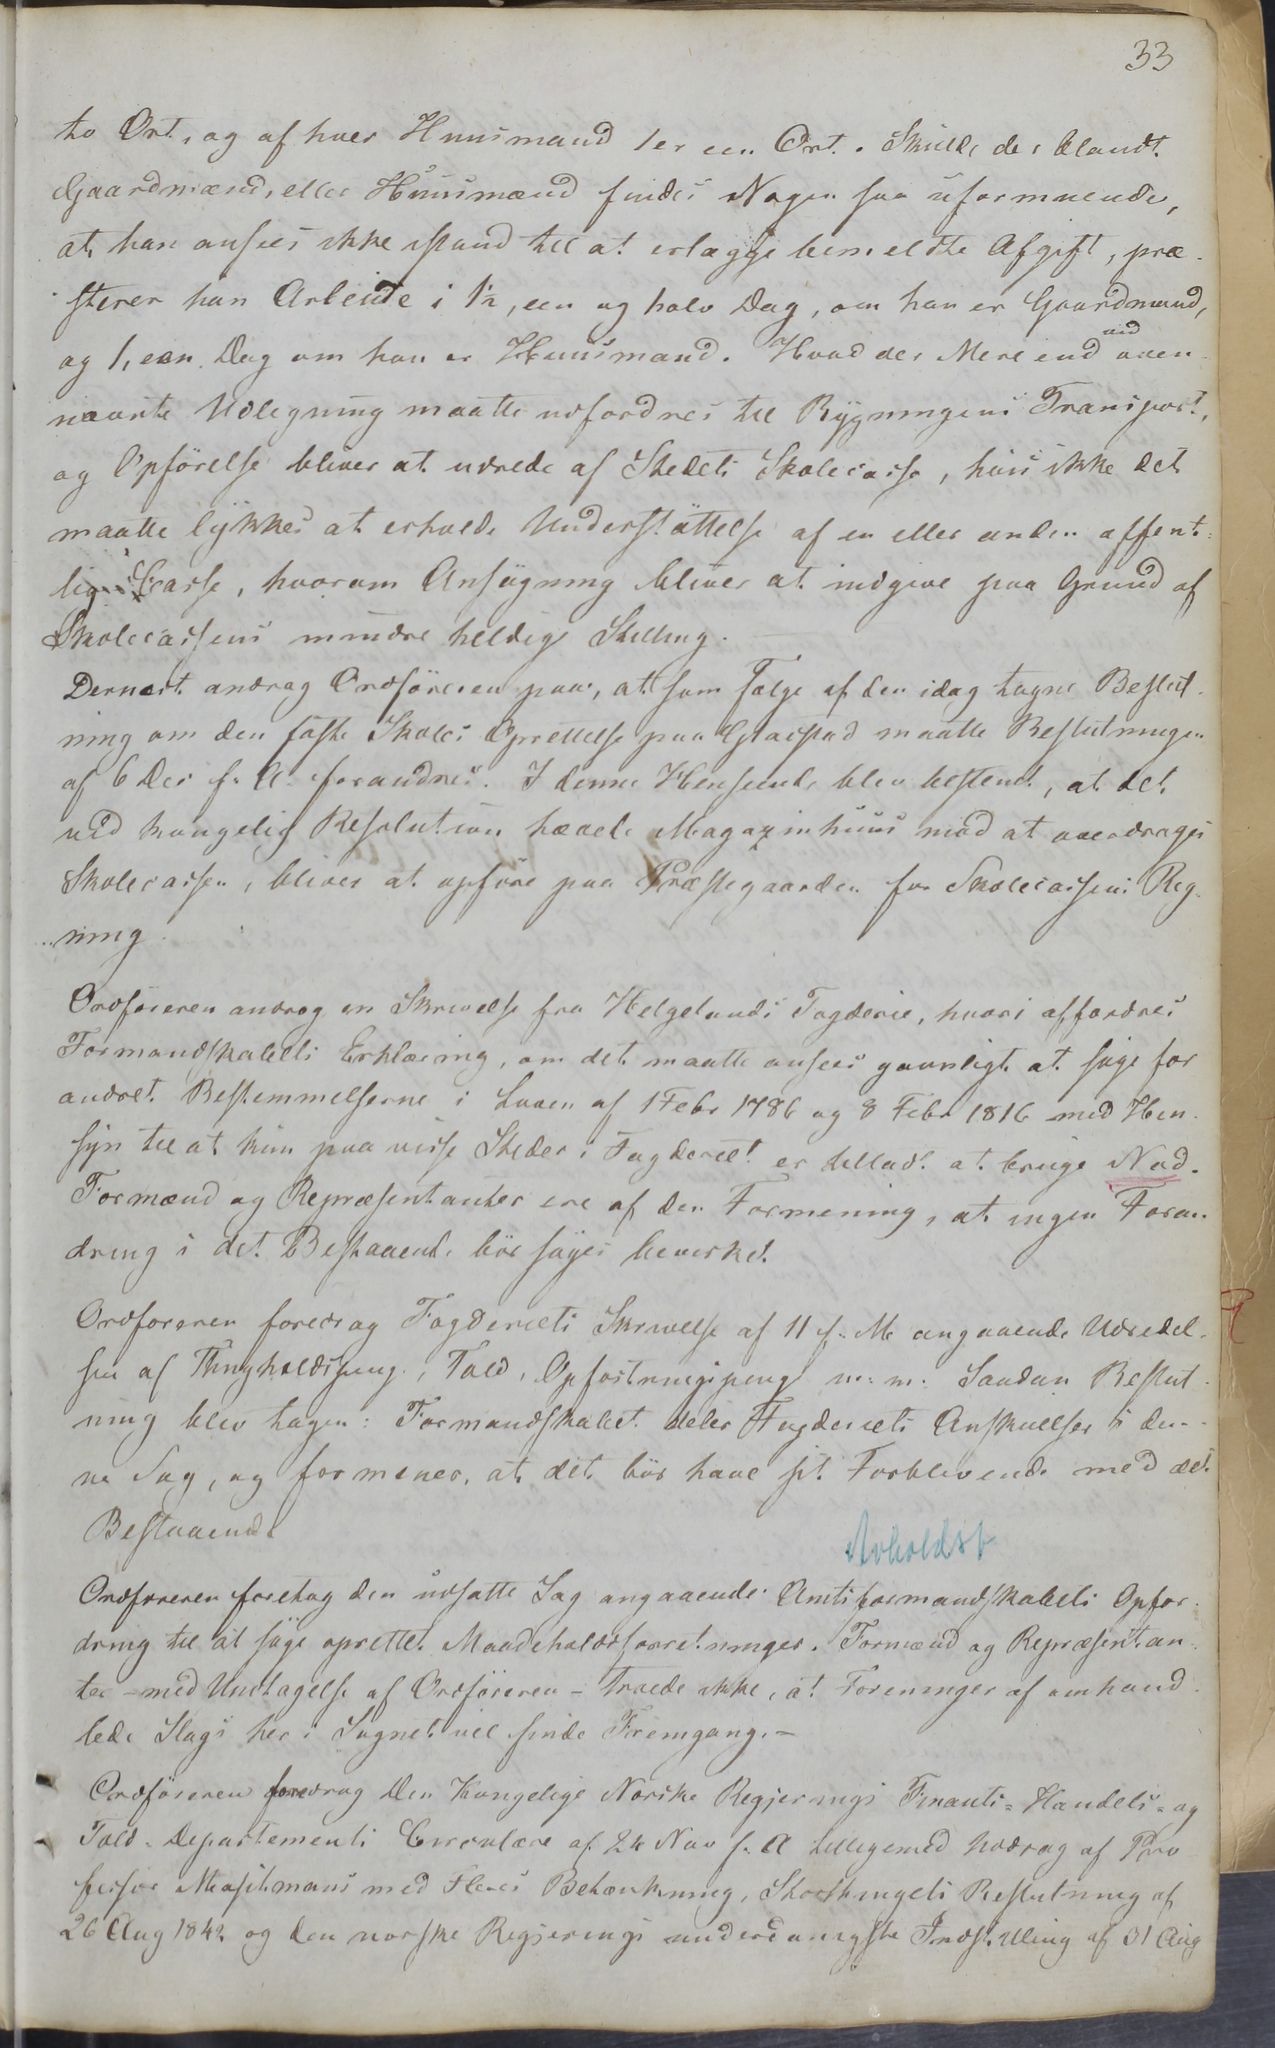 33
to Ort, og af hver Huusmand 1 er een Ort. Skulde der blandt
Gaardmænd eller Huusmænd findes Nogen saa uformuende,
at han ansees ikke istand til at erlægge bemeldte Afgift, præ-
sterer han Arbeide i 1½, een og halv Dag, om han er Gaardmand,
og 1, een Dag om han er Huusmand. Hvad der Mere end ved oven-
nævnte Udlegning maatte udfordres til Bygningens Transport,
og Opförelse bliver at udrede af Stedets Skolecasse, hvis ikke det
maatte lykkes at erholde Understöttelse af en eller anden offent-
lig Casse, hvorom Ansögning bliver at indgive paa Grund af
Skolecassens mindre heldige Stilling.
Dernæst androg Ordföreren paa, at som Fölge af den idag tagne Beslut-
ning om den faste Skoles Oprettelse paa maatte Beslutningen
af 6 Dec f. A. forandres. I denne Henseende blev bestemt, at det
ved kongelig Resolution hævede Magazinhuus mod at overdrages
Skolecassen, bliver at opföre paa Præstegaarden for Skolecassens Reg-
ning.
Ordföreren androg en Skrivelse fra Helgelands Fogderie, hvori affordres
Formandskabets Erklæring, om det maatte ansees gavnligt at söge for
andret Bestemmelserne i Loven af 1 Febr 1786 og 8 Febr 1816 med Hen-
syn til at kun paa visse Steder i Fogderiet er tilladt at bruge Nod.
Formænd og Repræsentanter ere af den Formening, at ingen Foran-
dring i det Bestaaende bör söges bevirket.
Ordföreren foredrog Fogderiets Skrivelse af 11 f. M. angaaende Udredel-
sen af Thingholdspenge, Told, Opfostringspenge m: m: Saadan Beslut-
ning blev tagen: Formandskabet deler Fogderiets Anskuelser i den-
ne Sag, og formener, at det bör have sit Forblivende med det
Bestaaende
Avholdsf
Ordföreren foretog den udsatte Sag angaaende Amtsformandskabets Opfor-
dring til at söge oprettet Maadeholdsforretninger. Formænd og Repræsentan-
ter - med Undtagelse af Ordföreren - troede ikke, at Foreninger af omhand-
lede Slags her i Sognet vil finde Fremgang. -
Ordföreren foredrog Den Kongelige Norske Regjerings Finants- Handels- og
Told-Departements Circulære af 24 Nov f. A tilligemed Uddrag af Pro-
fessor med Fleres Betænkning, Storthingets Beslutning af
26 Aug 1842 og den norske Regjerings underdanigste Indstilling af 31 Aug